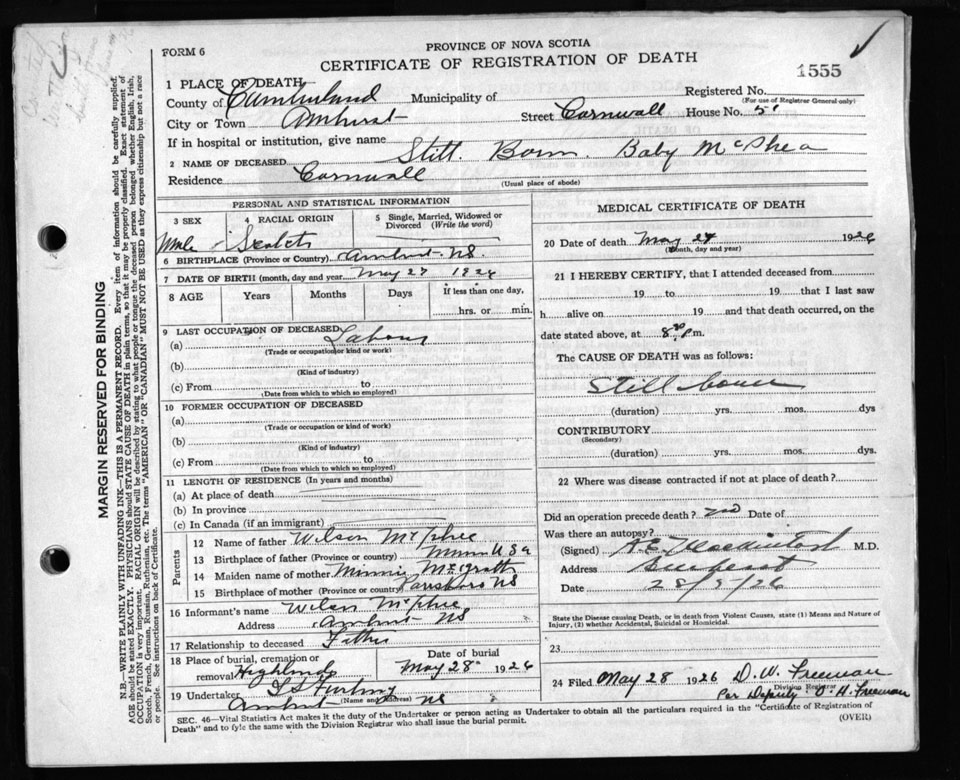 FORM 6
PROVINCE OF NOVA SCOTIA
CERTIFICATE OF REGISTRATION OF DEATH
1555
1 PLACE OF DEATH
County of Cumberland Municipality of Registered No.
(For use of Registrar General only)
City or Town Amherst Street Cornwall House No. 51
If in hospital or institution, give name
2 NAME OF DECEASED Still. Born. Baby McPhee
Residence Cornwall
(Usual place of abode)
PERSONAL AND STATISTICAL INFORMATION
3 SEX Male
4 RACIAL ORIGIN Scotch
5 Single, Married, Widowed or Divorced (Write the word)
6 BIRTHPLACE (Province or Country) Amherst NS.
7 DATE OF BIRTH (month, day and year) May 27 1926
8 AGE Years Months Days If less than one day,
hrs. or min.
9 LAST OCCUPATION OF DECEASED
(a)
(Trade or occupation or kind or work)
(b)
(Kind of industry)
(c) From to
(Date from which to which so employed)
10 FORMER OCCUPATION OF DECEASED
(a)
(Trade or occupation or kind of work)
(b)
(Kind of industry)
(c) From to
(Date from which to which so employed)
11 LENGTH OF RESIDENCE (In years and months)
(a) At place of death
(b) In province
(c) In Canada (if an immigrant)
Parents
12 Name of father Wilson McPhee
13 Birthplace of father (Province or country) Minn USA
14 Maiden name of mother Minnie McGrath
15 Birthplace of mother (Province or country) Parrsboro NS
16 Informant's name Wilson McPhee
Address Amherst NS
17 Relationship to deceased Father
18 Place of burial, cremation or removal Highlands
Date of burial May 28 1926
19 Undertaker
(Name and address)
Amherst NS
MEDICAL CERTIFICATE OF DEATH
20 Date of death May 27 1926
(Month, day and year)
21 I HEREBY CERTIFY, that I attended deceased from
19 to 19 that I last saw
h alive on 19 and that death occurred, on the
date stated above, at 8.30 p.m.
The CAUSE OF DEATH was as follows:
Still born
(duration) yrs. mos. dys
CONTRIBUTORY
(Secondary)
(duration) yrs. mos. dys
22 Where was disease contracted if not at place of death?
Did an operation precede death? no Date of
Was there an autopsy?
(Signed) M.D.
Address Amherst
Date 28/5/26
State the Disease causing Death, or in death from Violent Causes, state (1) Means and Nature of Injury, (2) whether Accidental, Suicidal or Homicidal.
23
24 Filed May 28 1926 D. W. Freeman
Division Registrar
Per Deputy. H. Freeman
SEC. 46—Vital Statistics Act makes it the duty of the Undertaker or person acting as Undertaker to obtain all the particulars required in the "Certificate of Registration of
Death" and to fyle the same with the Division Registrar who shall issue the burial permit. (OVER)
MARGIN RESERVED FOR BINDING
N.B.—WRITE PLAINLY WITH UNFADING INK—THIS IS A PERMANENT RECORD. Every item of information should be carefully supplied.
AGE should be stated EXACTLY. PHYSICIANS should STATE CAUSE OF DEATH in plain terms, so that it may be properly classified. Exact statement of
OCCUPATION is very important. RACIAL ORIGIN will be described by stating to what people or tongue the deceased person belonged whether English, Irish,
Scotch, French, German, Russian, Ruthenian, etc. The terms "AMERICAN" OR "CANADIAN" MUST NOT BE USED as they express citizenship but not a race
or people. See instructions on back of Certificate.